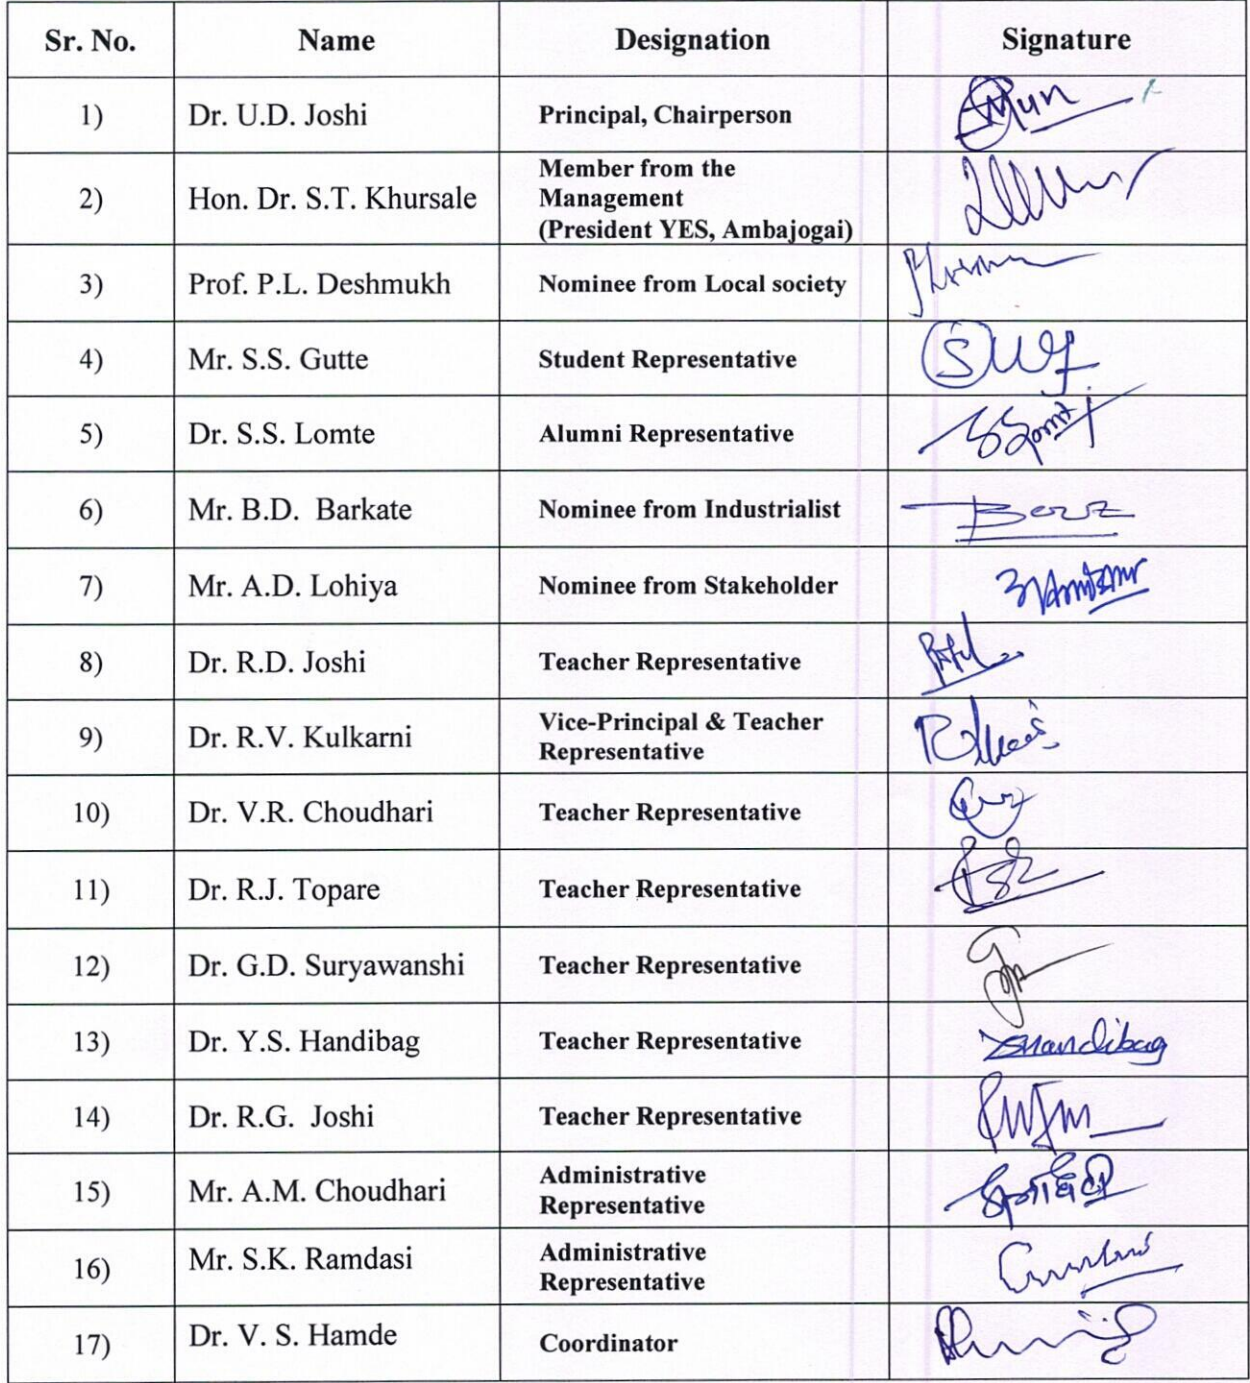 Sr. No. Name Designation Signature
1) Dr. U.D. Joshi Principal, Chairperson
2) Hon. Dr. S.T. Khursale Member from the
Management
(President YES, Ambajogai)
3) Prof. P.L. Deshmukh Nominee from Local society
4) Mr. S.S. Gutte Student Representative
5) Dr. S.S. Lomte Alumni Representative
6) Mr. B.D. Barkate Nominee from Industrialist
7) Mr. A.D. Lohiya Nominee from Stakeholder
8) Dr. R.D. Joshi Teacher Representative
9) Dr. R.V. Kulkarni Vice-Principal & Teacher
Representative
10) Dr. V.R. Choudhari Teacher Representative
11) Dr. R.J. Topare Teacher Representative
12) Dr. G.D. Suryawanshi Teacher Representative
13) Dr. Y.S. Handibag Teacher Representative
14) Dr. R.G. Joshi Teacher Representative
15) Mr. A.M. Choudhari Administrative
Representative
16) Mr. S.K. Ramdasi Administrative
Representative
17) Dr. V. S. Hamde Coordinator